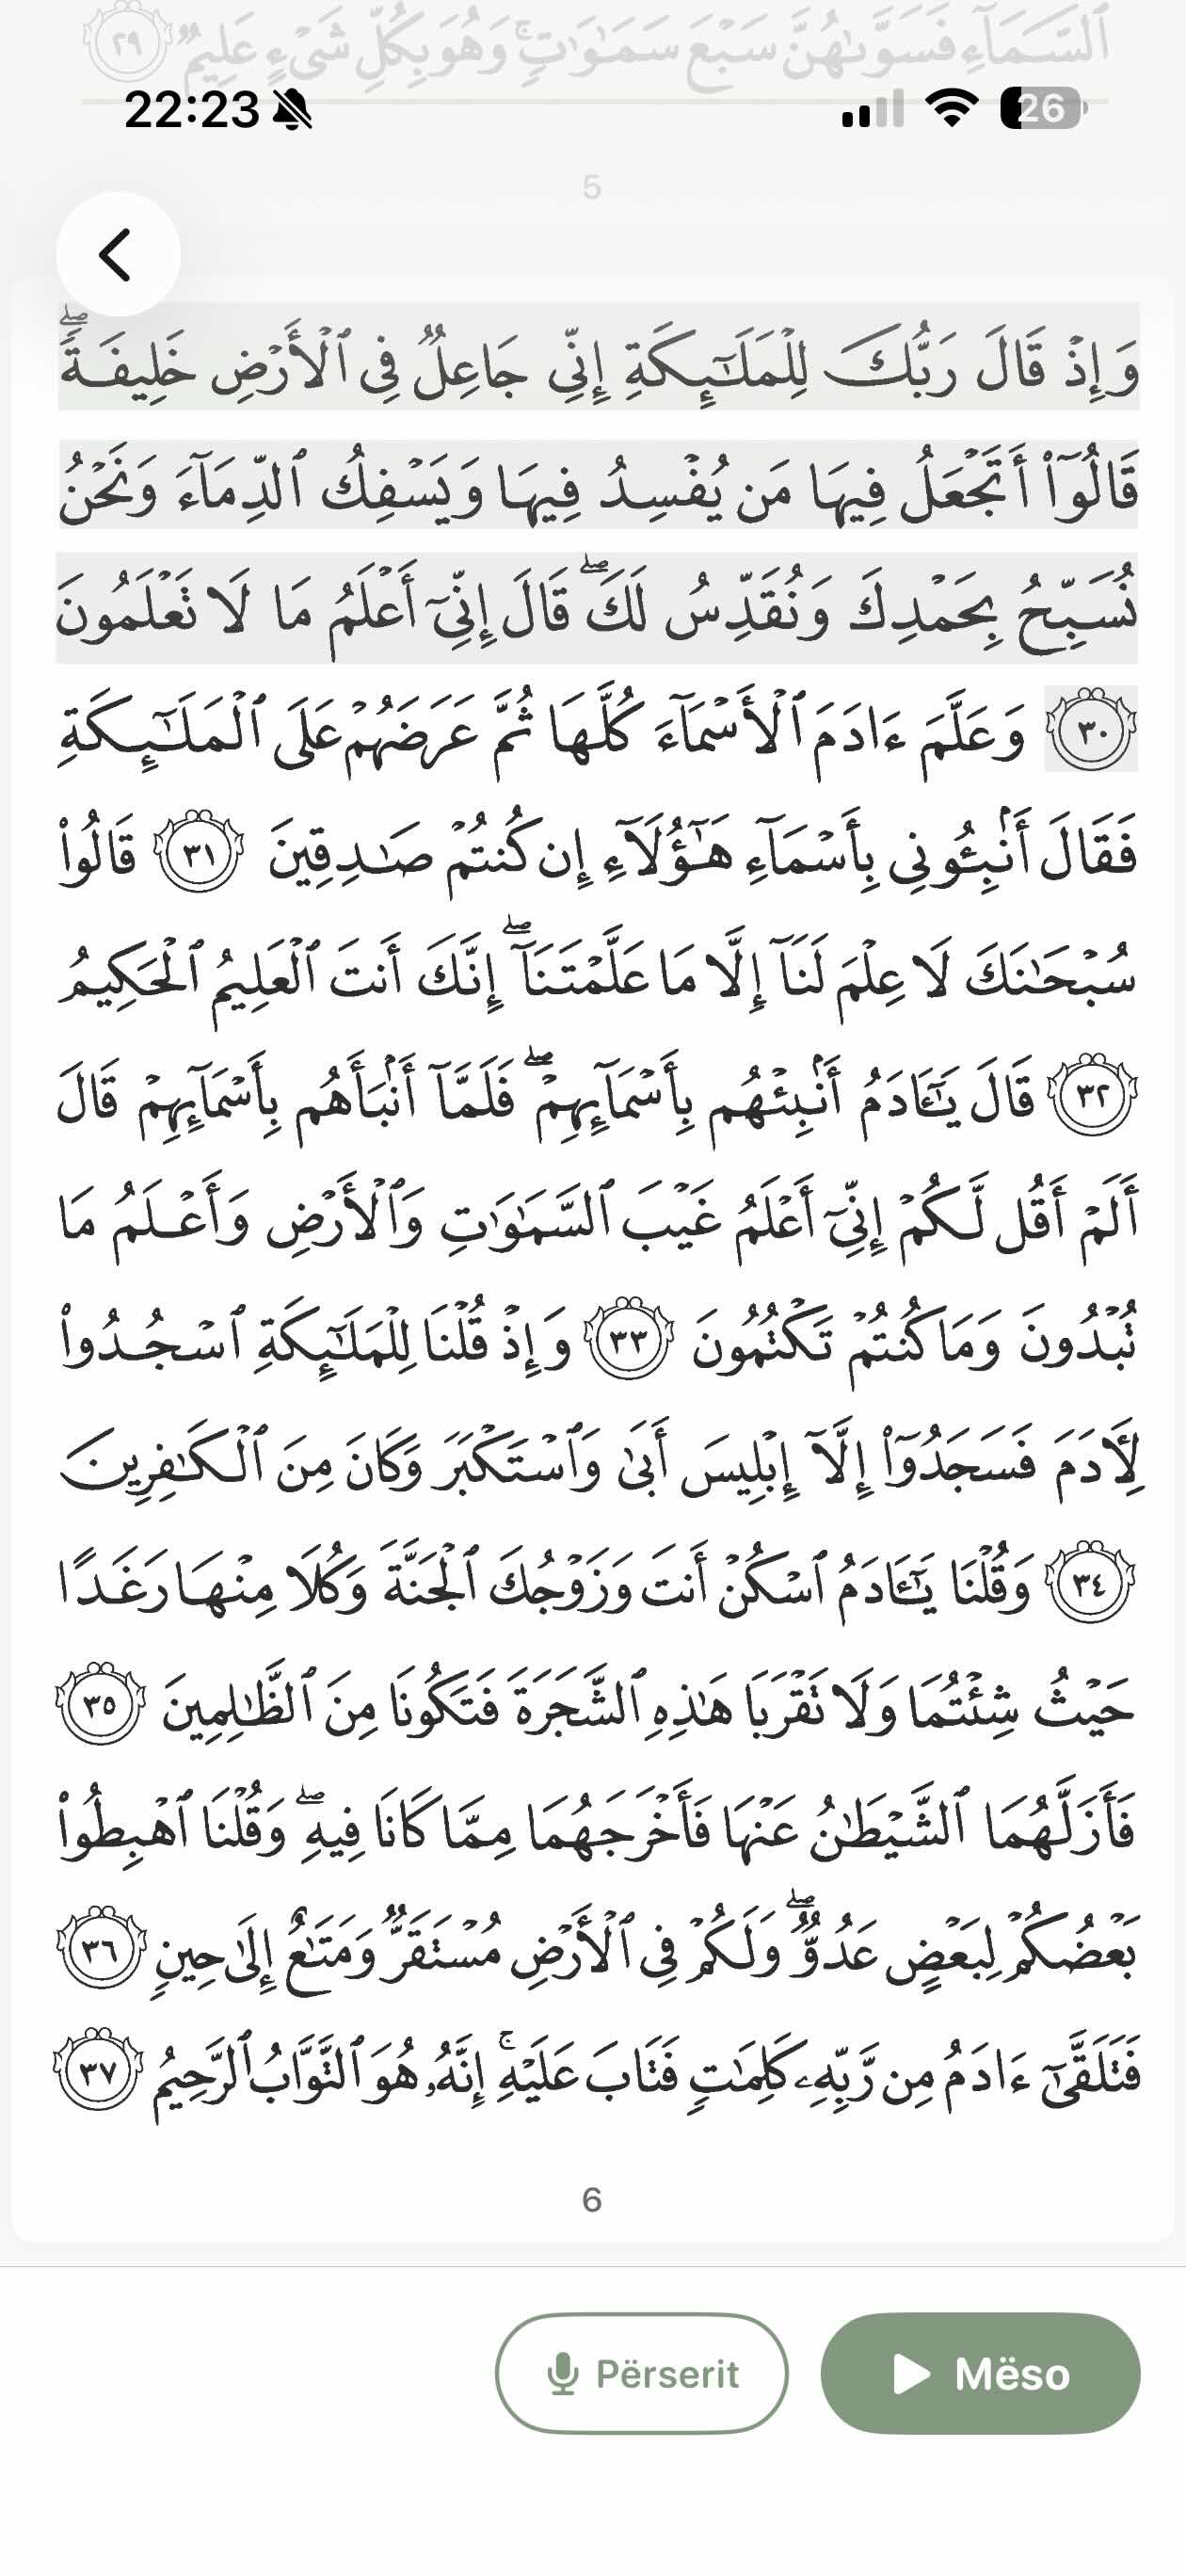 ٱلسَّمَآءِ فَسَوَّىٰهُنَّ سَبْعَ سَمَٰوَٰتٍۚ وَهُوَ بِكُلِّ شَىْءٍ عَلِيمٌ ٢٩
22:23
26
5
وَإِذْ قَالَ رَبُّكَ لِلْمَلَٰٓئِكَةِ إِنِّى جَاعِلٌ فِى ٱلْأَرْضِ خَلِيفَةًۖ
قَالُوٓا۟ أَتَجْعَلُ فِيهَا مَن يُفْسِدُ فِيهَا وَيَسْفِكُ ٱلدِّمَآءَ وَنَحْنُ
نُسَبِّحُ بِحَمْدِكَ وَنُقَدِّسُ لَكَۖ قَالَ إِنِّىٓ أَعْلَمُ مَا لَا تَعْلَمُونَ
٣٠ وَعَلَّمَ ءَادَمَ ٱلْأَسْمَآءَ كُلَّهَا ثُمَّ عَرَضَهُمْ عَلَى ٱلْمَلَٰٓئِكَةِ
فَقَالَ أَنۢبِـُٔونِى بِأَسْمَآءِ هَٰٓؤُلَآءِ إِن كُنتُمْ صَٰدِقِينَ ٣١ قَالُوا۟
سُبْحَٰنَكَ لَا عِلْمَ لَنَآ إِلَّا مَا عَلَّمْتَنَآۖ إِنَّكَ أَنتَ ٱلْعَلِيمُ ٱلْحَكِيمُ
٣٢ قَالَ يَٰٓـَٔادَمُ أَنۢبِئْهُم بِأَسْمَآئِهِمْۖ فَلَمَّآ أَنۢبَأَهُم بِأَسْمَآئِهِمْ قَالَ
أَلَمْ أَقُل لَّكُمْ إِنِّىٓ أَعْلَمُ غَيْبَ ٱلسَّمَٰوَٰتِ وَٱلْأَرْضِ وَأَعْلَمُ مَا
تُبْدُونَ وَمَا كُنتُمْ تَكْتُمُونَ ٣٣ وَإِذْ قُلْنَا لِلْمَلَٰٓئِكَةِ ٱسْجُدُوا۟
لِـَٔادَمَ فَسَجَدُوٓا۟ إِلَّآ إِبْلِيسَ أَبَىٰ وَٱسْتَكْبَرَ وَكَانَ مِنَ ٱلْكَٰفِرِينَ
٣٤ وَقُلْنَا يَٰٓـَٔادَمُ ٱسْكُنْ أَنتَ وَزَوْجُكَ ٱلْجَنَّةَ وَكُلَا مِنْهَا رَغَدًا
حَيْثُ شِئْتُمَا وَلَا تَقْرَبَا هَٰذِهِ ٱلشَّجَرَةَ فَتَكُونَا مِنَ ٱلظَّٰلِمِينَ ٣٥
فَأَزَلَّهُمَا ٱلشَّيْطَٰنُ عَنْهَا فَأَخْرَجَهُمَا مِمَّا كَانَا فِيهِۖ وَقُلْنَا ٱهْبِطُوا۟
بَعْضُكُمْ لِبَعْضٍ عَدُوٌّۖ وَلَكُمْ فِى ٱلْأَرْضِ مُسْتَقَرٌّ وَمَتَٰعٌ إِلَىٰ حِينٍ ٣٦
فَتَلَقَّىٰٓ ءَادَمُ مِن رَّبِّهِۦ كَلِمَٰتٍ فَتَابَ عَلَيْهِۚ إِنَّهُۥ هُوَ ٱلتَّوَّابُ ٱلرَّحِيمُ ٣٧
6
Përserit
Mëso